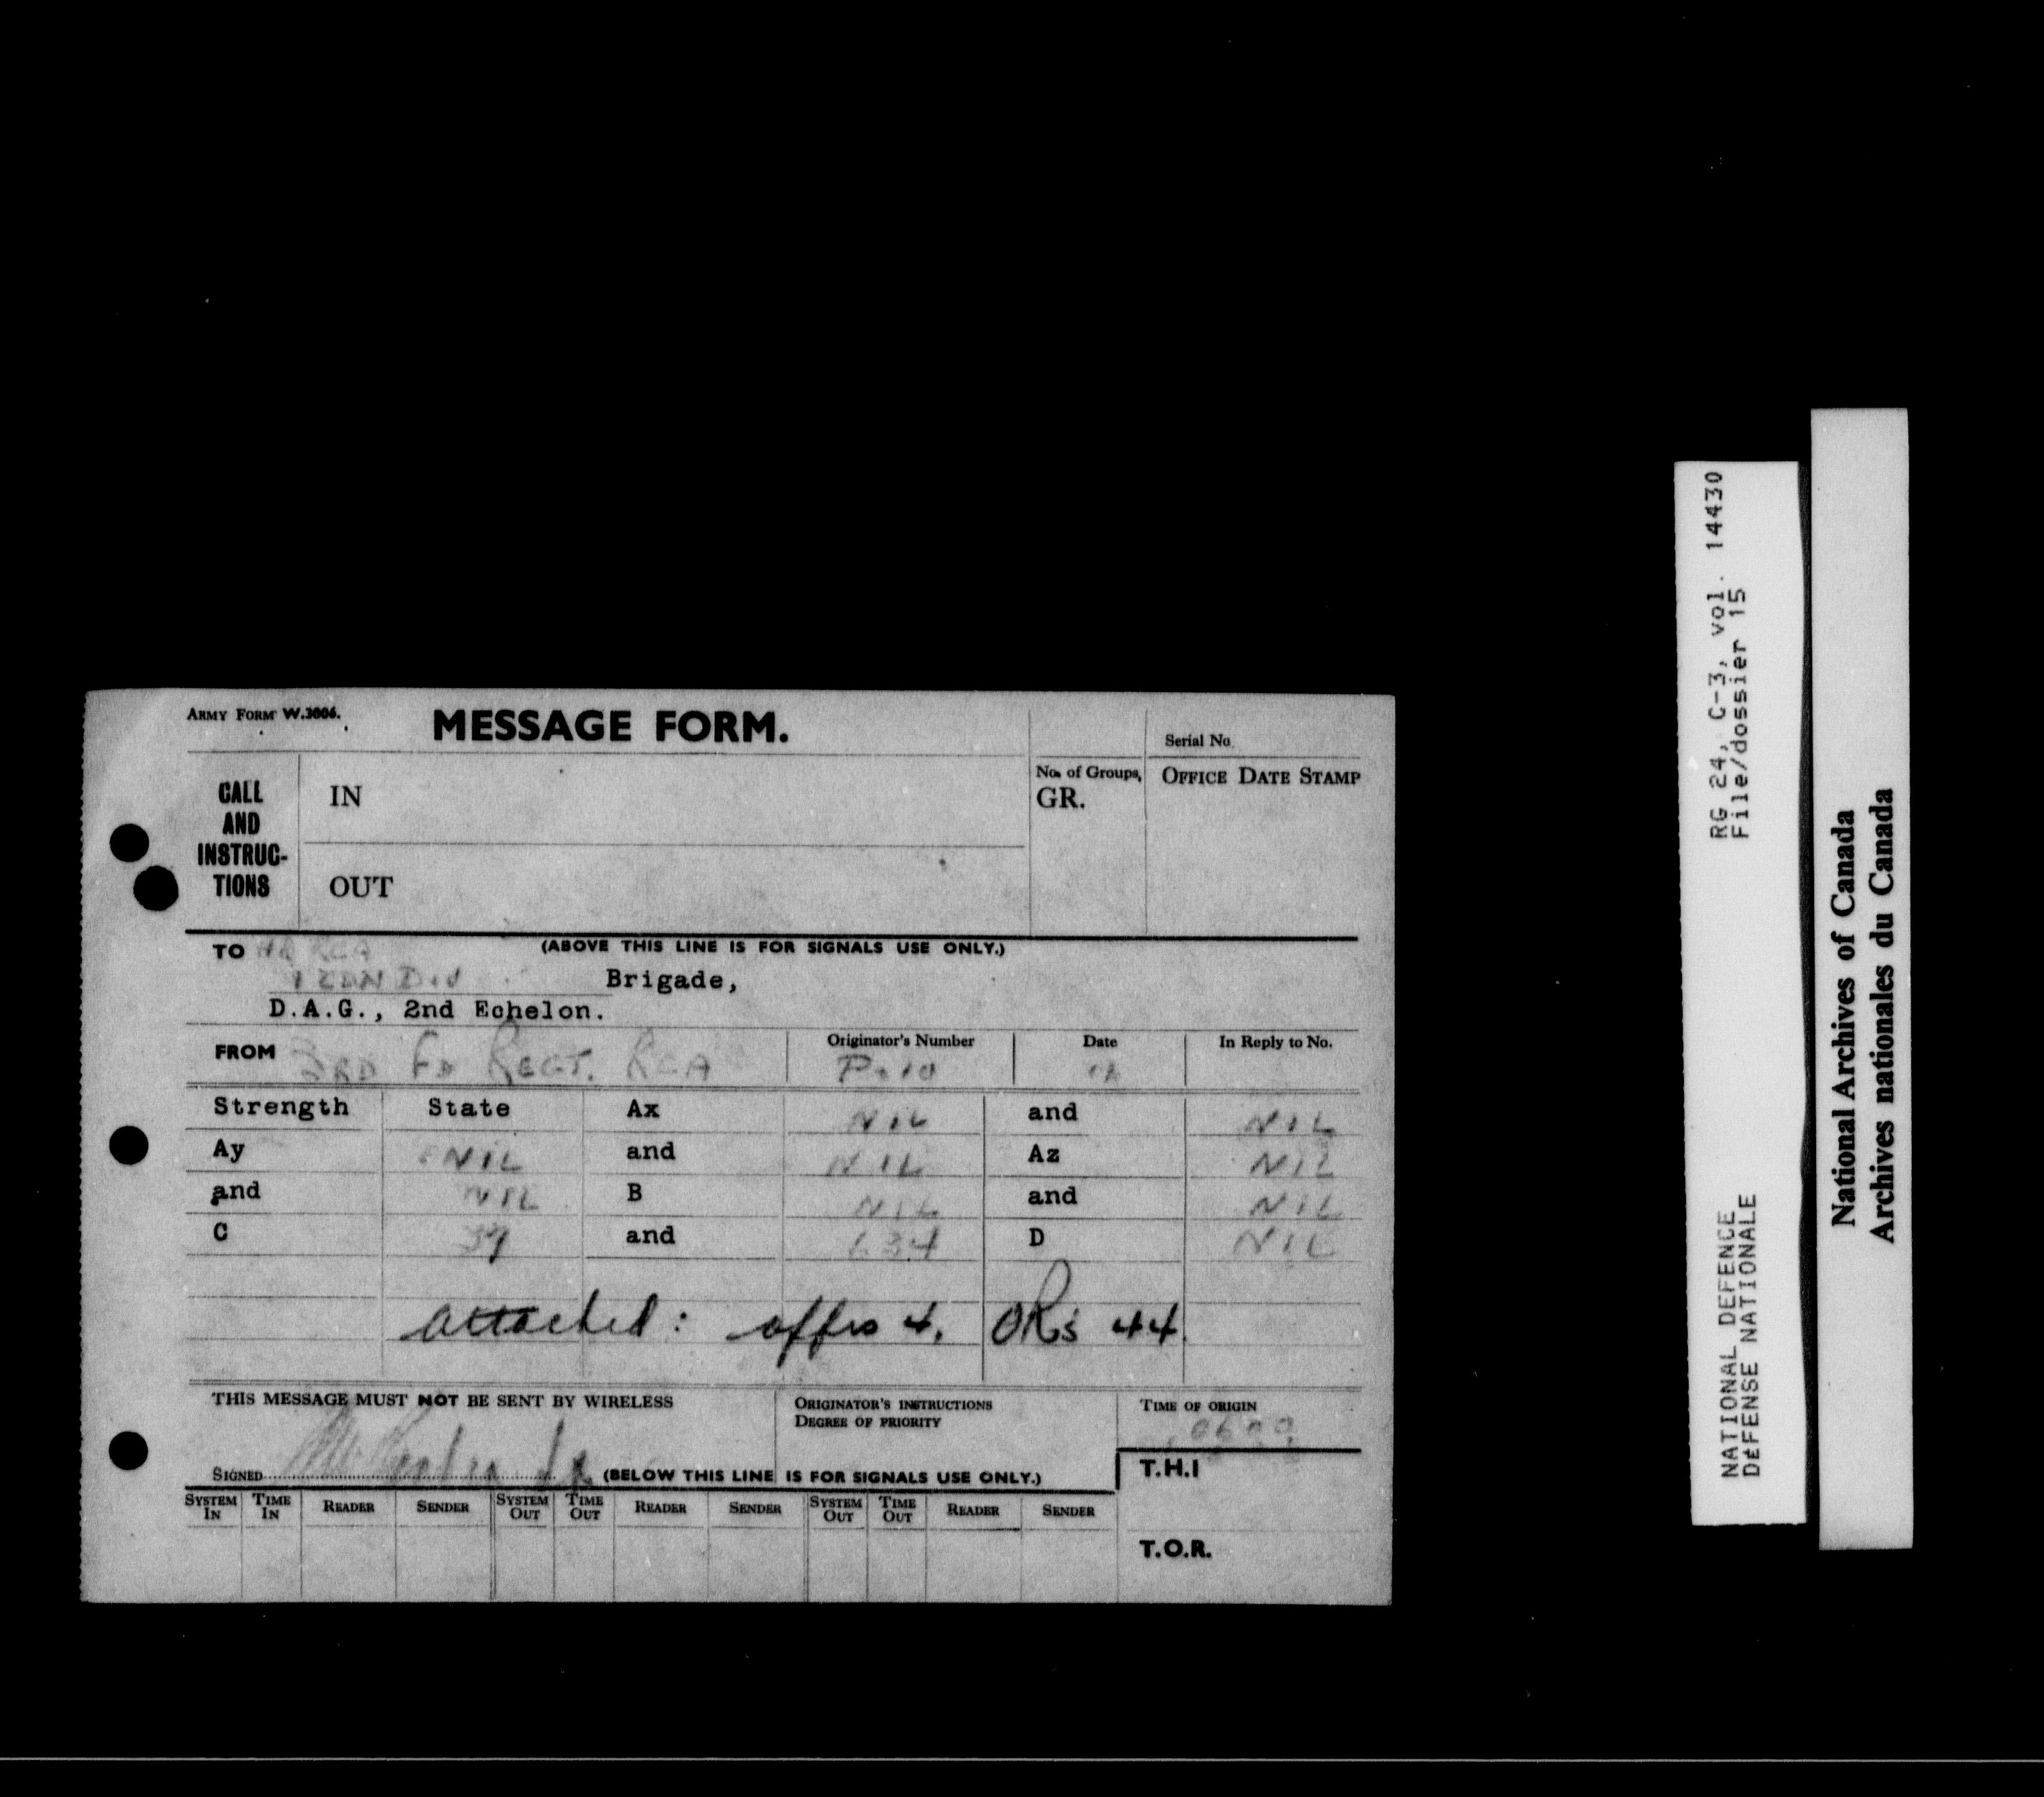 ARMY FORM W.3006.
MESSAGE FORM.
Serial No
CALL
AND
INSTRUC-
TIONS
IN
OUT
No. of Groups,
GR.
OFFICE DATE STAMP
TO HQ RCA
(ABOVE THIS LINE IS FOR SIGNALS USE ONLY.)
1 CDN DIV Brigade,
D.A.G., 2nd Echelon.
FROM 3RD FD REGT. RCA
Originator's Number
Date
In Reply to No.
Strength State Ax NIL and NIL
Ay NIL and NIL Az NIL
and NIL B NIL and NIL
C 39 and 634 D NIL
attached: offrs 4. ORs 44.
THIS MESSAGE MUST NOT BE SENT BY WIRELESS
ORIGINATOR'S INSTRUCTIONS
DEGREE OF PRIORITY
TIME OF ORIGIN
0600
SIGNED
(BELOW THIS LINE IS FOR SIGNALS USE ONLY.)
T.H.I
SYSTEM IN TIME IN READER SENDER SYSTEM OUT TIME OUT READER SENDER SYSTEM OUT TIME OUT READER SENDER
T.O.R.
NATIONAL DEFENCE RG 24, C-3, vol. 14430
DéFENSE NATIONALE File/dossier 15
National Archives of Canada
Archives nationales du Canada